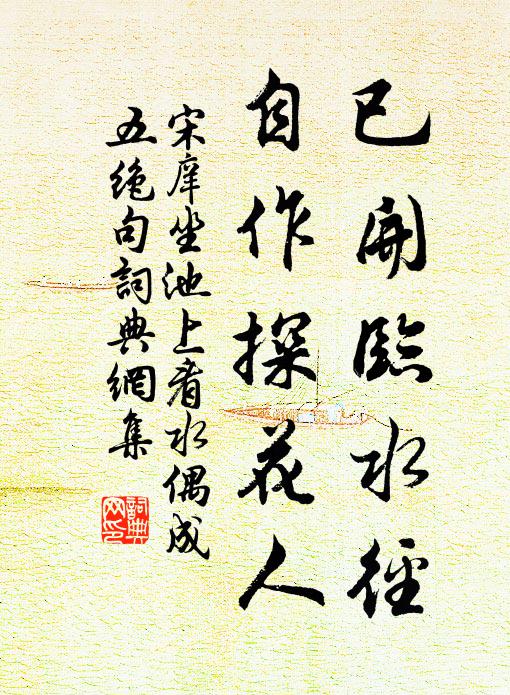 已開臨水徑
自作探花人
宋庠坐池上看水偶成
五絶句詞典網集
詞典
网印